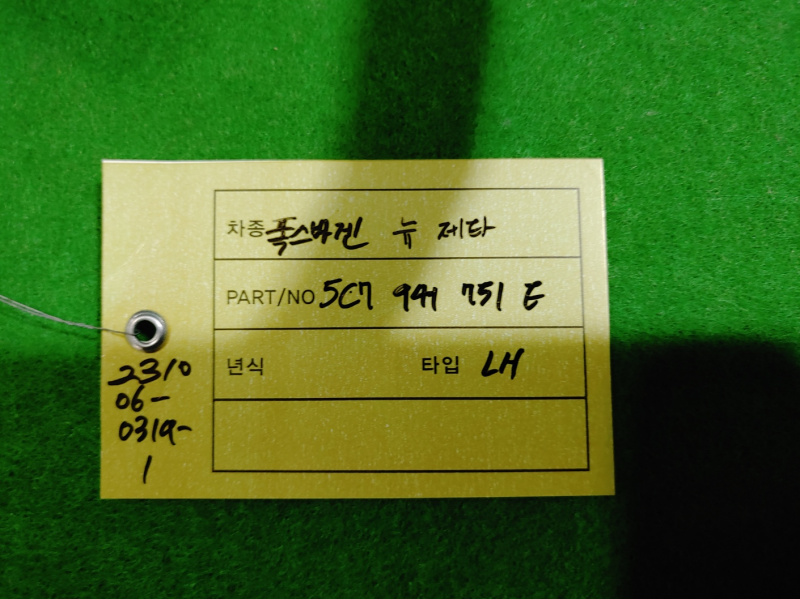 차종 폭스바겐 뉴 제타
PART/NO 5C7 941 751 E
년식 타입 LH
2310
06-
0319-
1